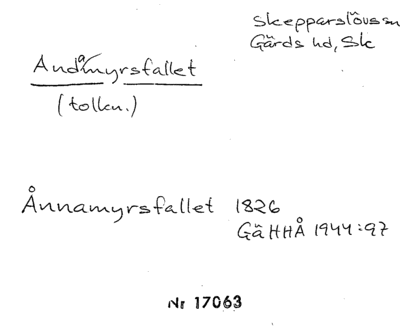 Skepparslövs sn
Gärds hd, Sk
Andåmyrsfallet
(tolkn.)
Ånnamyrsfallet 1826
GäHHÅ 1944:97
Nr 17063